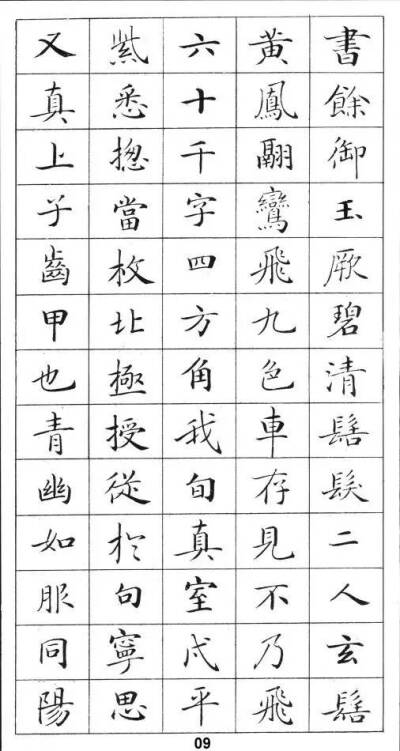 書餘御玉厥碧清髻髮二人玄髻
黄鳳翮鸞飛九色車存見不乃飛
六十千字四方角我旬真室平
紫悉揔當枚北極授從於句寧思
又真上子齒甲也青幽如服同陽
09